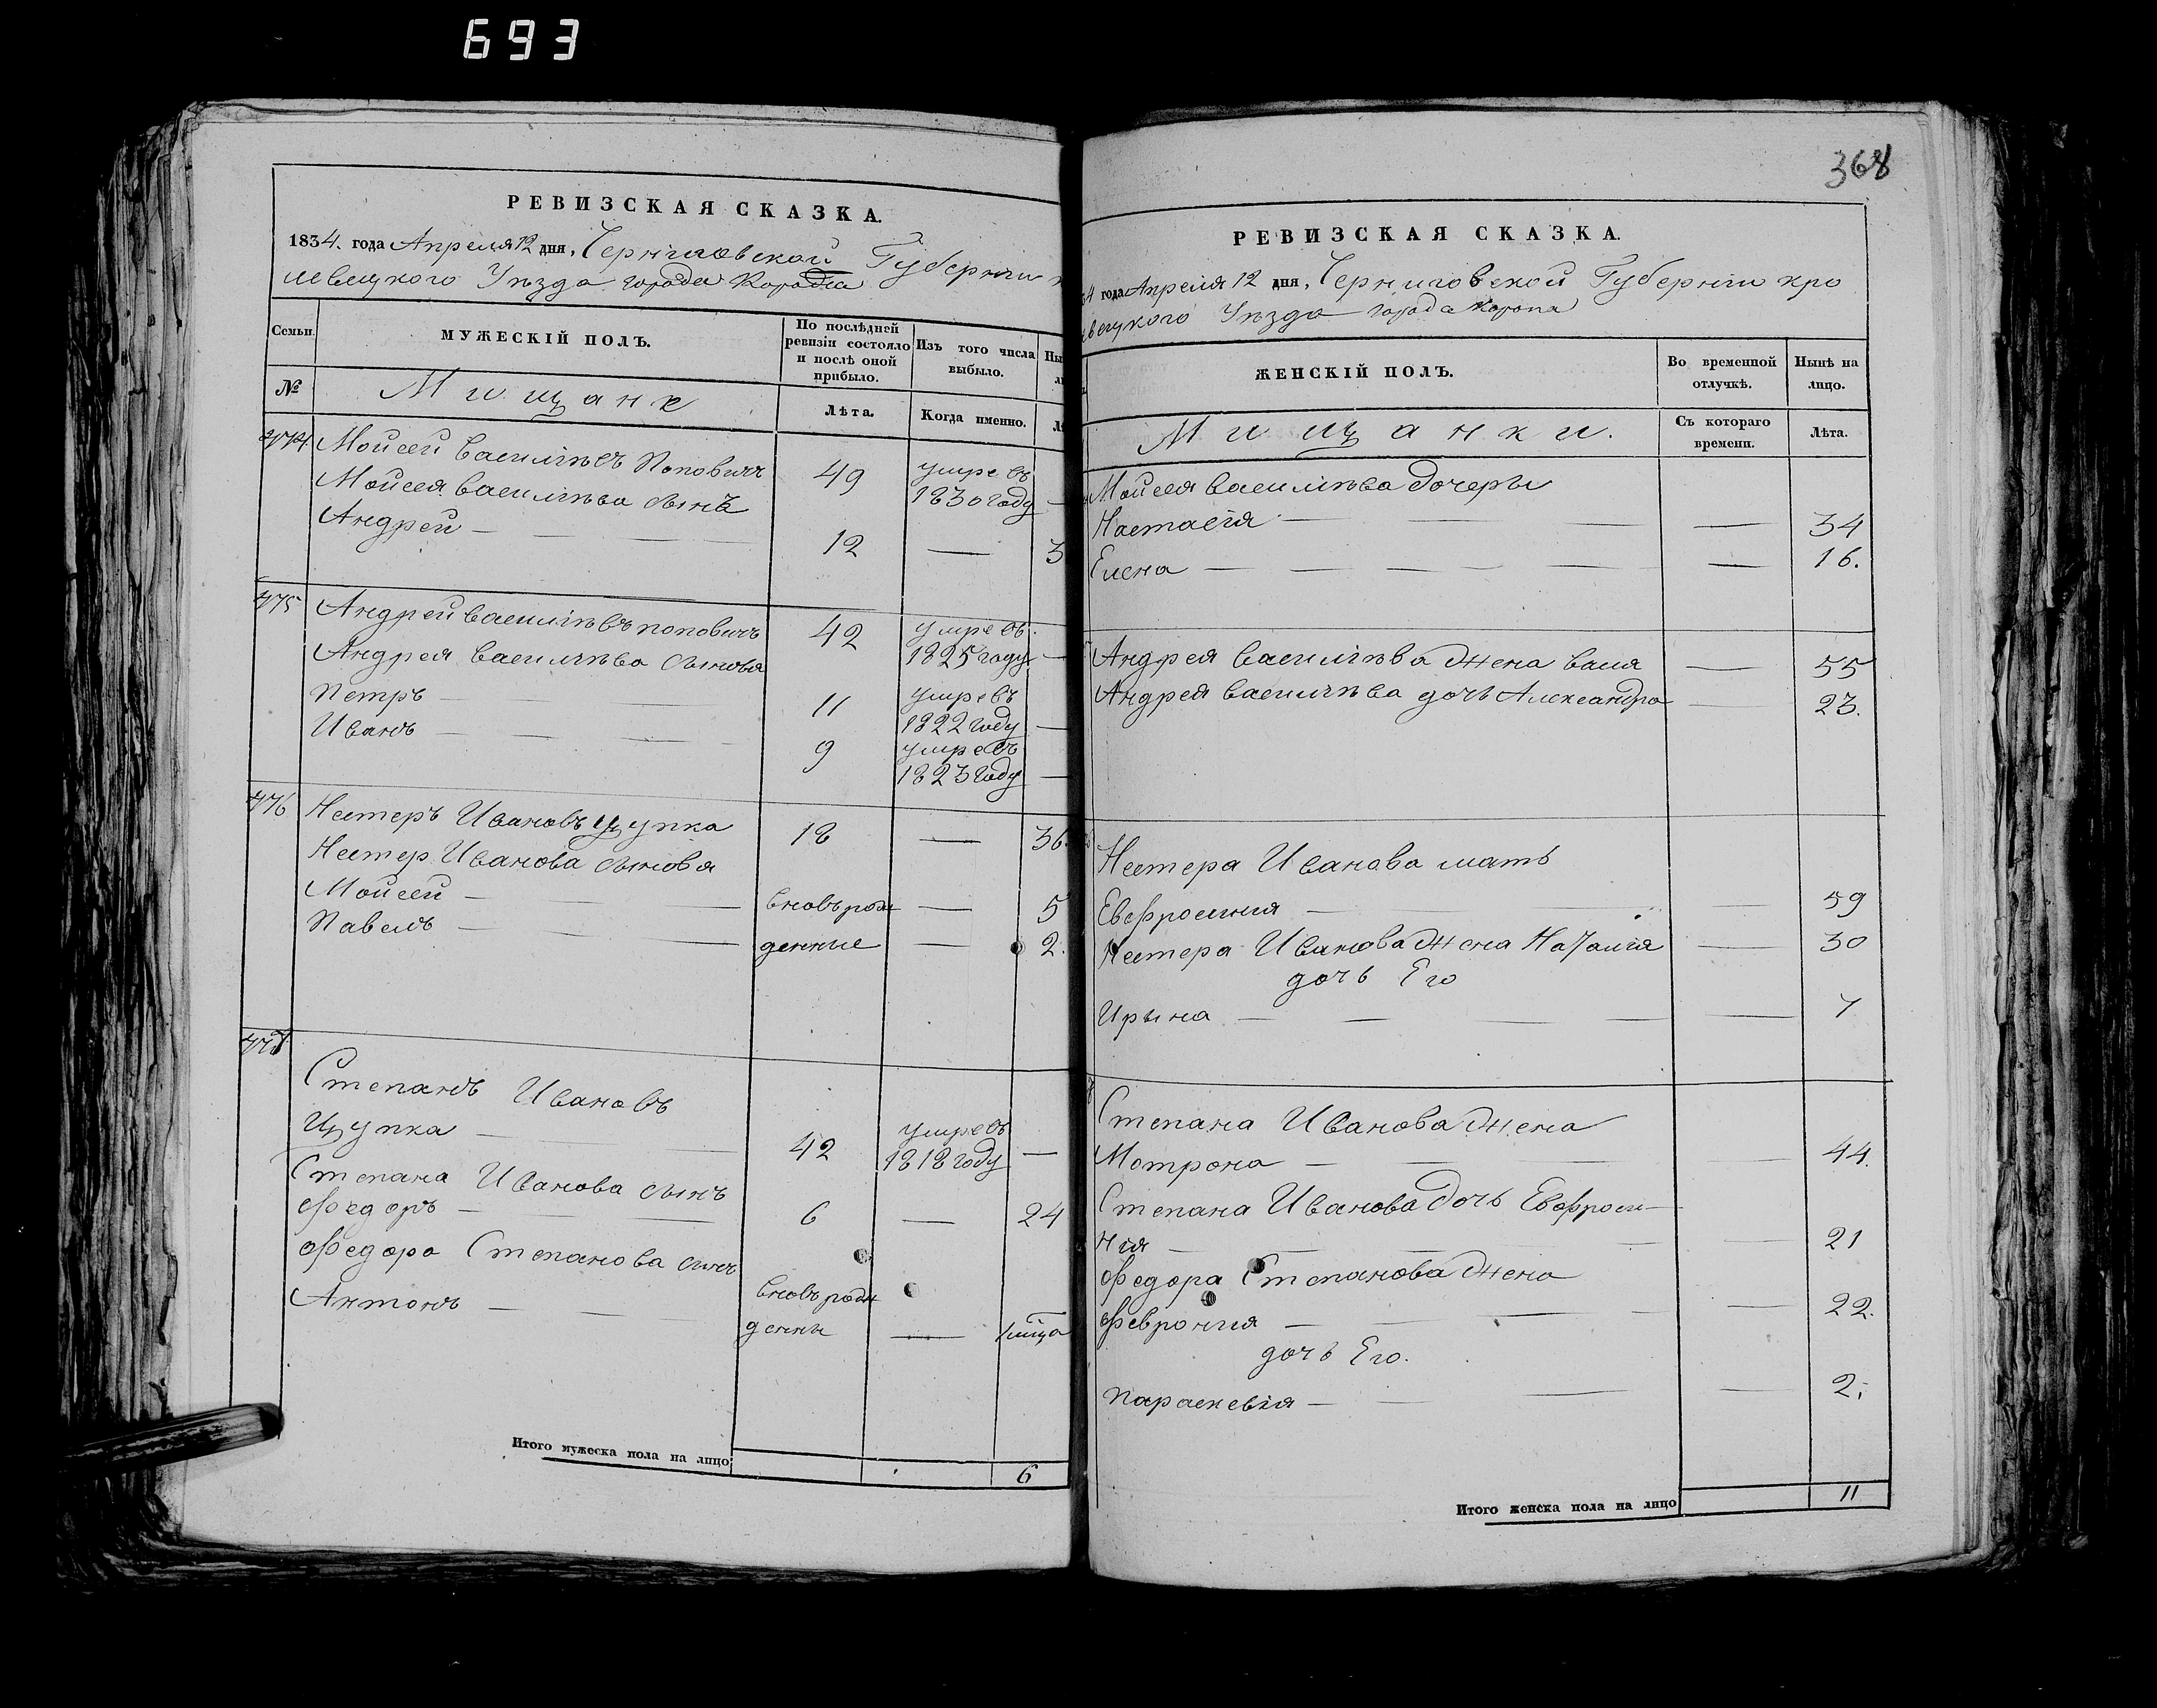 693
РЕВИЗСКАЯ СКАЗКА.
1834. года Апреля 12 дня, Черниговской Губернии
левецкого Уезда города Коропа
Семьи.
МУЖЕСКІЙ ПОЛЪ.
По послѣдней ревизіи состояло и послѣ оной прибыло.
Изъ того числа выбыло.
№
Мищане
Лѣта.
Когда именно.
474 Моисей Василіевъ Поповичъ 49 умре въ 1830 году —
Моисея Василіева сынъ
Андрей — 12 — 3
475 Андрей Василіевъ Поповичъ 42 умре въ 1825 году —
Андрея Василіева сыновья
Петръ — 11 умре въ 1822 году —
Иванъ — 9 умре въ 1823 году —
476 Нестеръ Ивановъ Цупка 18 — 36.
Нестер Иванова сыновья
Моисей — вновь рож — 5
Павелъ — денные — 2.
Степанъ Ивановъ
Цупка — 42 умре въ 1818 году —
Степана Иванова сынъ
Федоръ — 6 — 24
Федора Степанова сынъ
Антонъ — вновь рож
денны —
Итого мужеска пола на лицо 6
368
РЕВИЗСКАЯ СКАЗКА.
4 года Апреля 12 дня, Черниговской Губерніи кро
вецкого Уезда города Коропа
ЖЕНСКІЙ ПОЛЪ.
Во временной отлучкѣ.
Нынѣ на лицо.
Мищанки.
Съ котораго времени.
Лѣта.
Моисея Василіева дочеры
Настасія — — 34
Елена — — 16.
Андрея Василіева жена — 55
Андрея Василіева дочь Александра — 23.
Нестера Иванова мать
Евфросиния — — 59
Нестера Иванова жена Наталия — 30
дочь Его
Ирына — — 7
Степана Иванова жена
Мотрона — — 44.
Степана Иванова дочь Евфроси-
ния — — 21
Федора Степанова жена
Феврония — — 22.
дочь Его.
Параскевія — — 2;
Итого женска пола на лицо 11